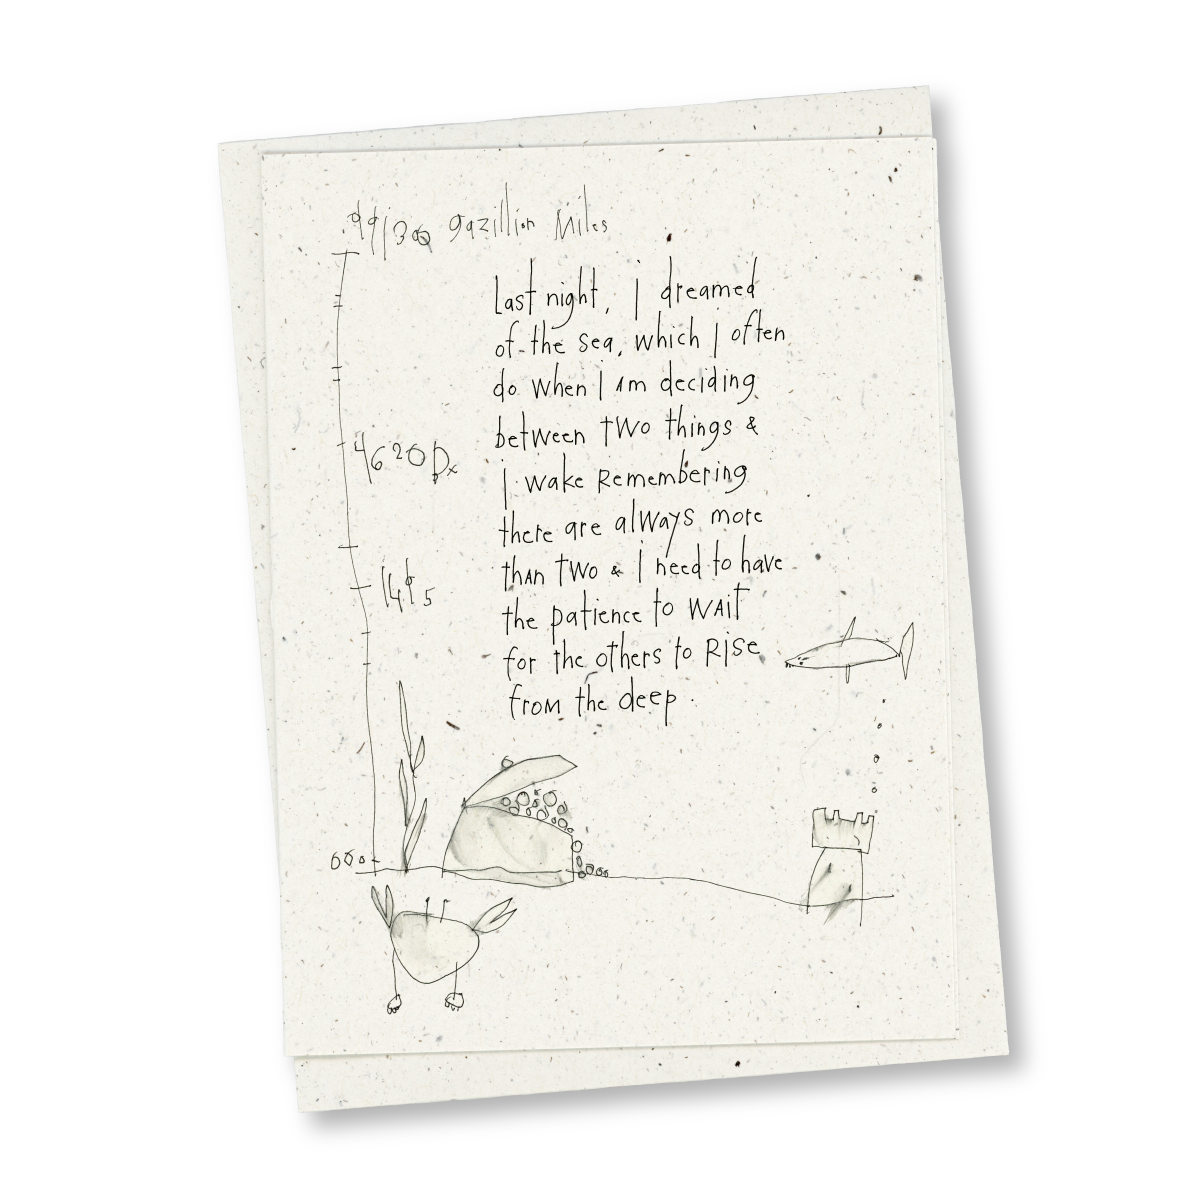 gazillion Miles
Last night, I dreamed
of the sea, which I often
do when I am deciding
between two things &
I wake Remembering
there are always more
than two & I need to have
the patience to wait
for the others to Rise
from the deep.